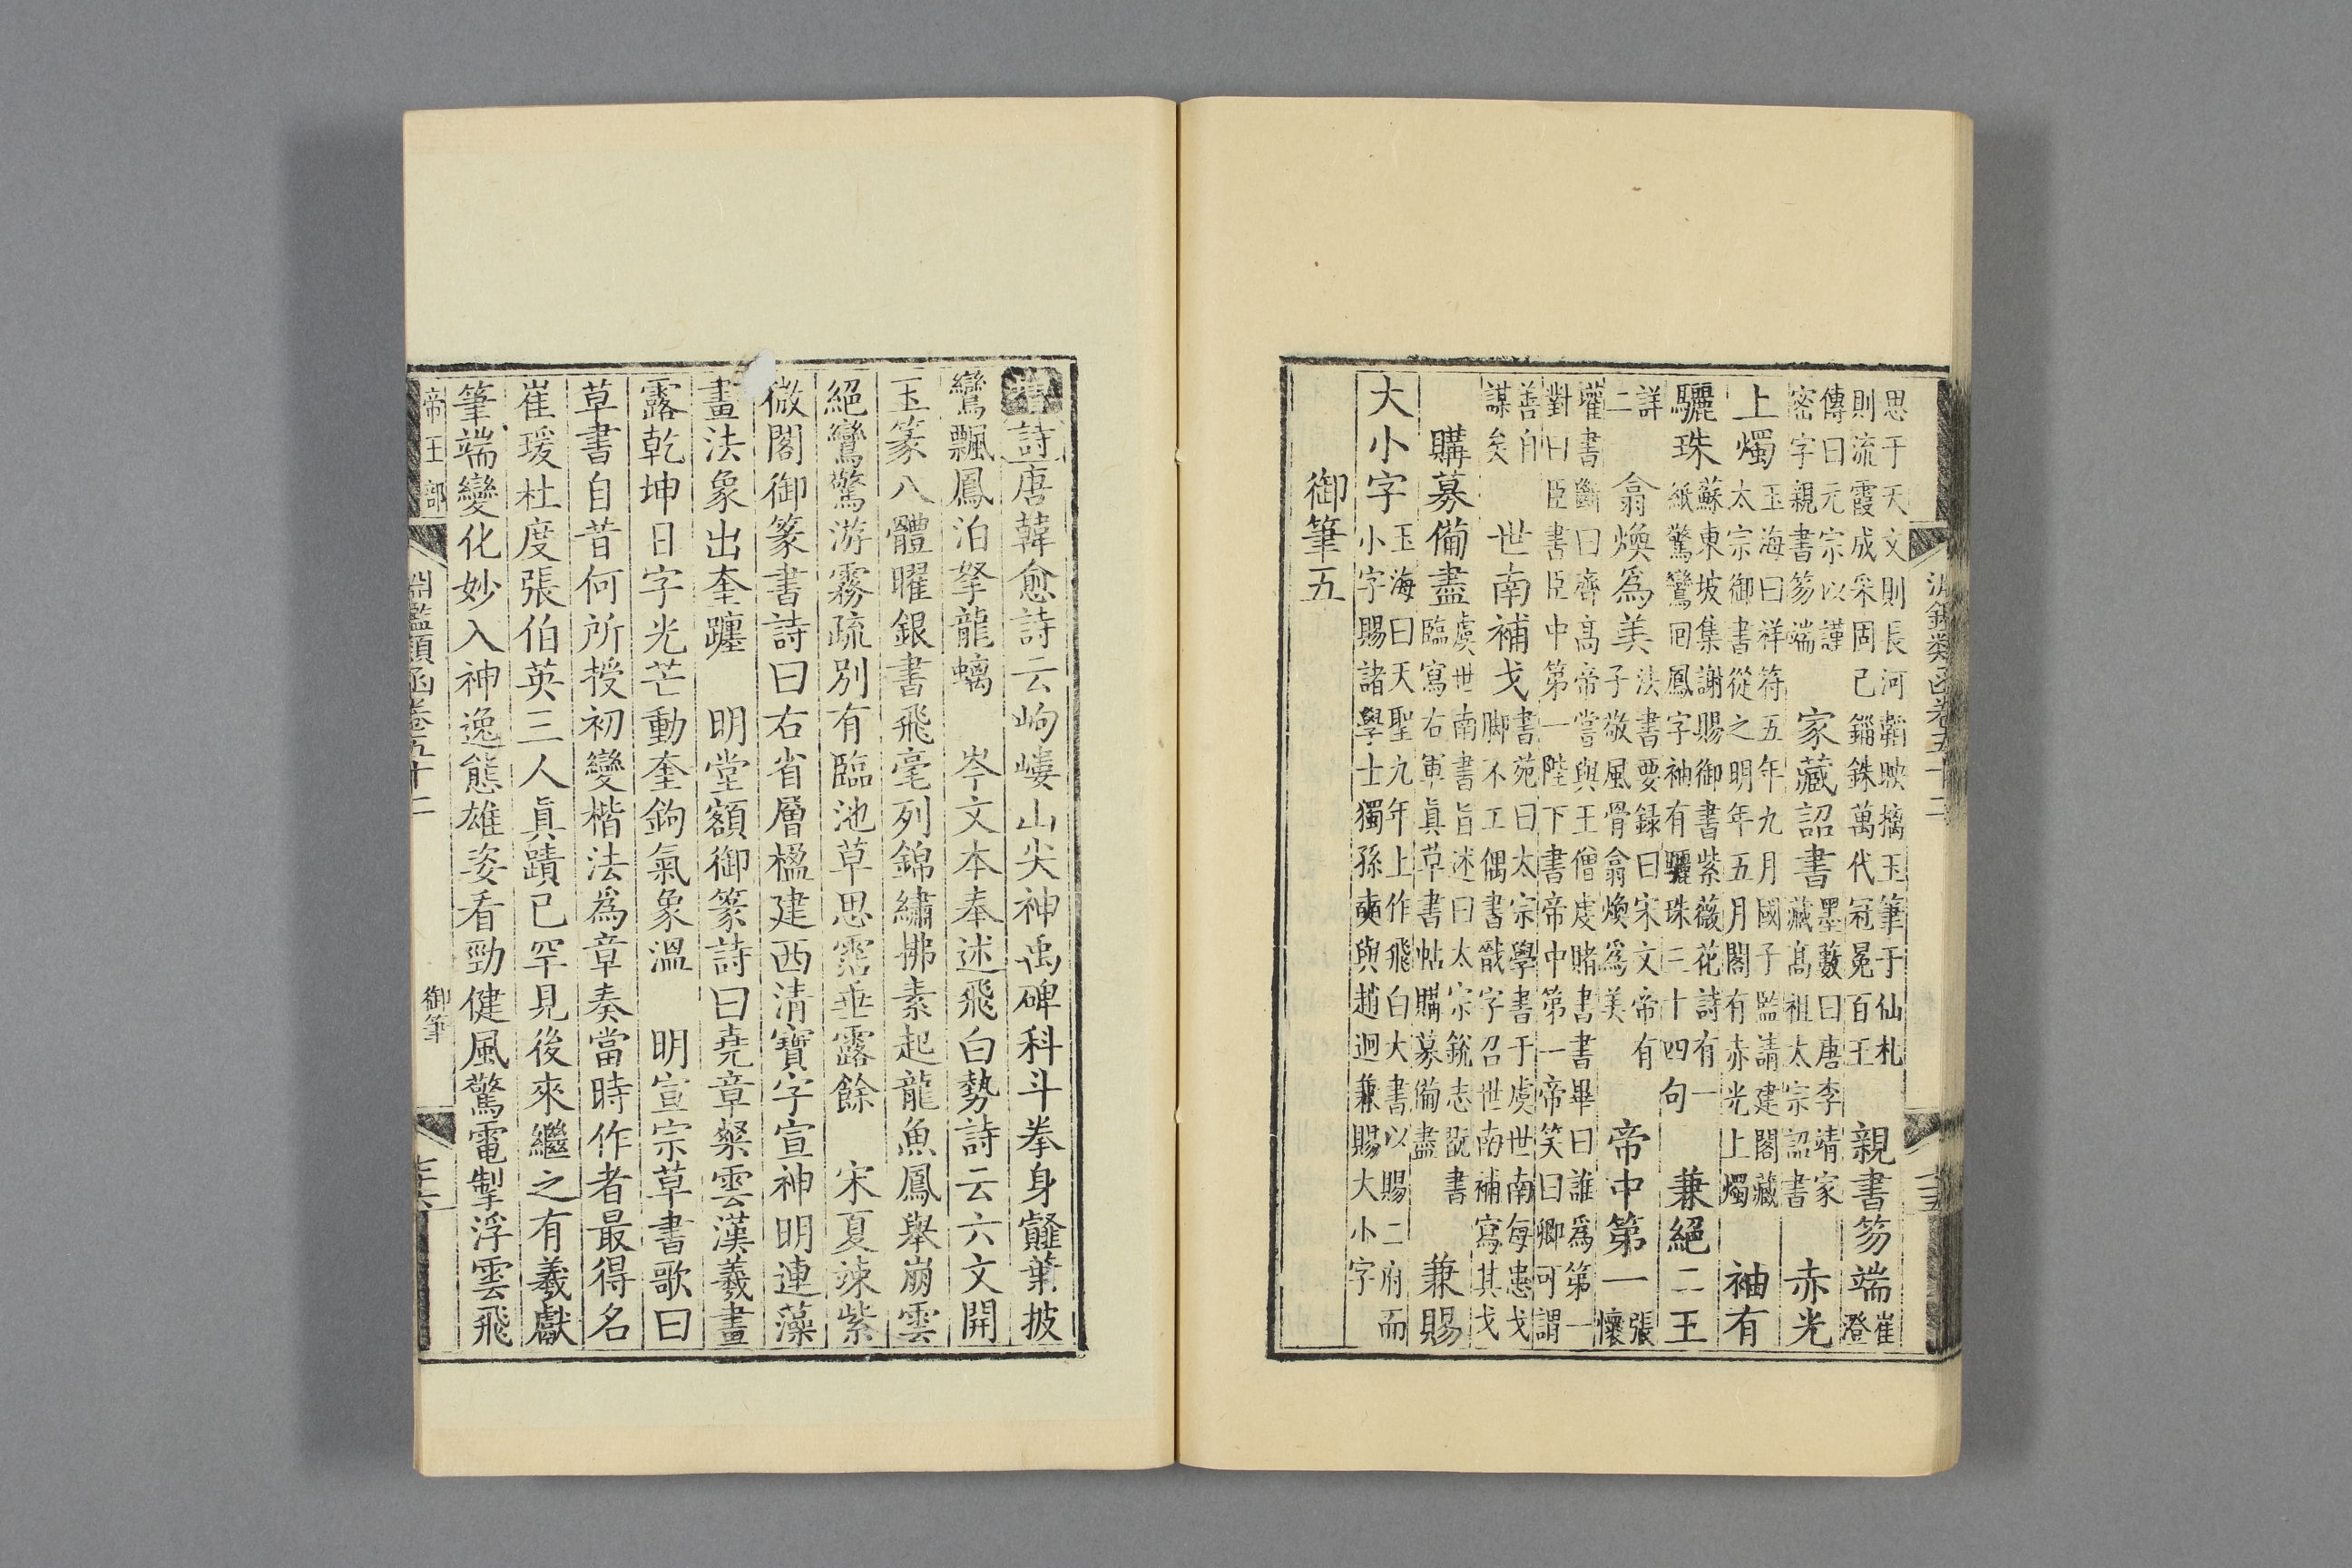 思于天文則長河韜映摛玉筆于仙札
則流霞成采固已錙銖萬代冠冕百王
親書笏端
崔
澄
傳曰元宗以謹
密字親書笏端
家藏詔書
墨藪曰唐李靖家
藏高祖太宗詔書
赤光
上燭
玉海曰祥符五年九月國子監請建閣藏
太宗御書從之明年五月閣有赤光上燭
袖有
驪珠
蘇東坡集謝賜御書紫薇花詩有一
紙驚鸞回鳳字袖有驪珠三十四句
兼絕二王
詳
二
翕煥爲美
法書要録曰宋文帝有
子敬風骨翕煥爲美
帝中第一
張
懷
瓘書斷曰齊高帝嘗與王僧虔賭書書畢曰誰爲第一
對曰臣書臣中第一陛下書帝中第一帝笑曰卿可謂
善自
謀矣
世南補戈
書苑曰太宗學書于虞世南每患戈
脚不工偶書戩字召世南補寫其戈
購募備盡
虞世南書旨述曰太宗銳志翫書
臨寫右軍真草書帖購募備盡
兼賜
大小字
玉海曰天聖九年上作飛白大書以賜二府而
小字賜諸學士獨孫奭與趙迥兼賜大小字
御筆五
淵鑑類函卷五十二
詩唐韓愈詩云岣嶁山尖神禹碑科斗拳身薤葉披
鸞飄鳳泊拏龍螭 岑文本奉述飛白勢詩云六文開
玉篆八體曜銀書飛毫列錦繡拂素起龍魚鳳舉崩雲
絕鸞驚游霧疏別有臨池草思霑垂露餘 宋夏竦紫
微閣御篆書詩曰右省層楹建西清寶字宣神明連藻
畫法象出奎躔 明堂額御篆詩曰堯章粲雲漢羲畫
露乾坤日字光芒動奎鉤氣象溫 明宣宗草書歌曰
草書自昔何所授初變楷法爲章奏當時作者最得名
崔瑗杜度張伯英三人眞蹟已罕見後來繼之有羲獻
筆端變化妙入神逸態雄姿看勁健風驚電掣浮雲飛
帝王部
淵鑑類函卷五十二
御筆